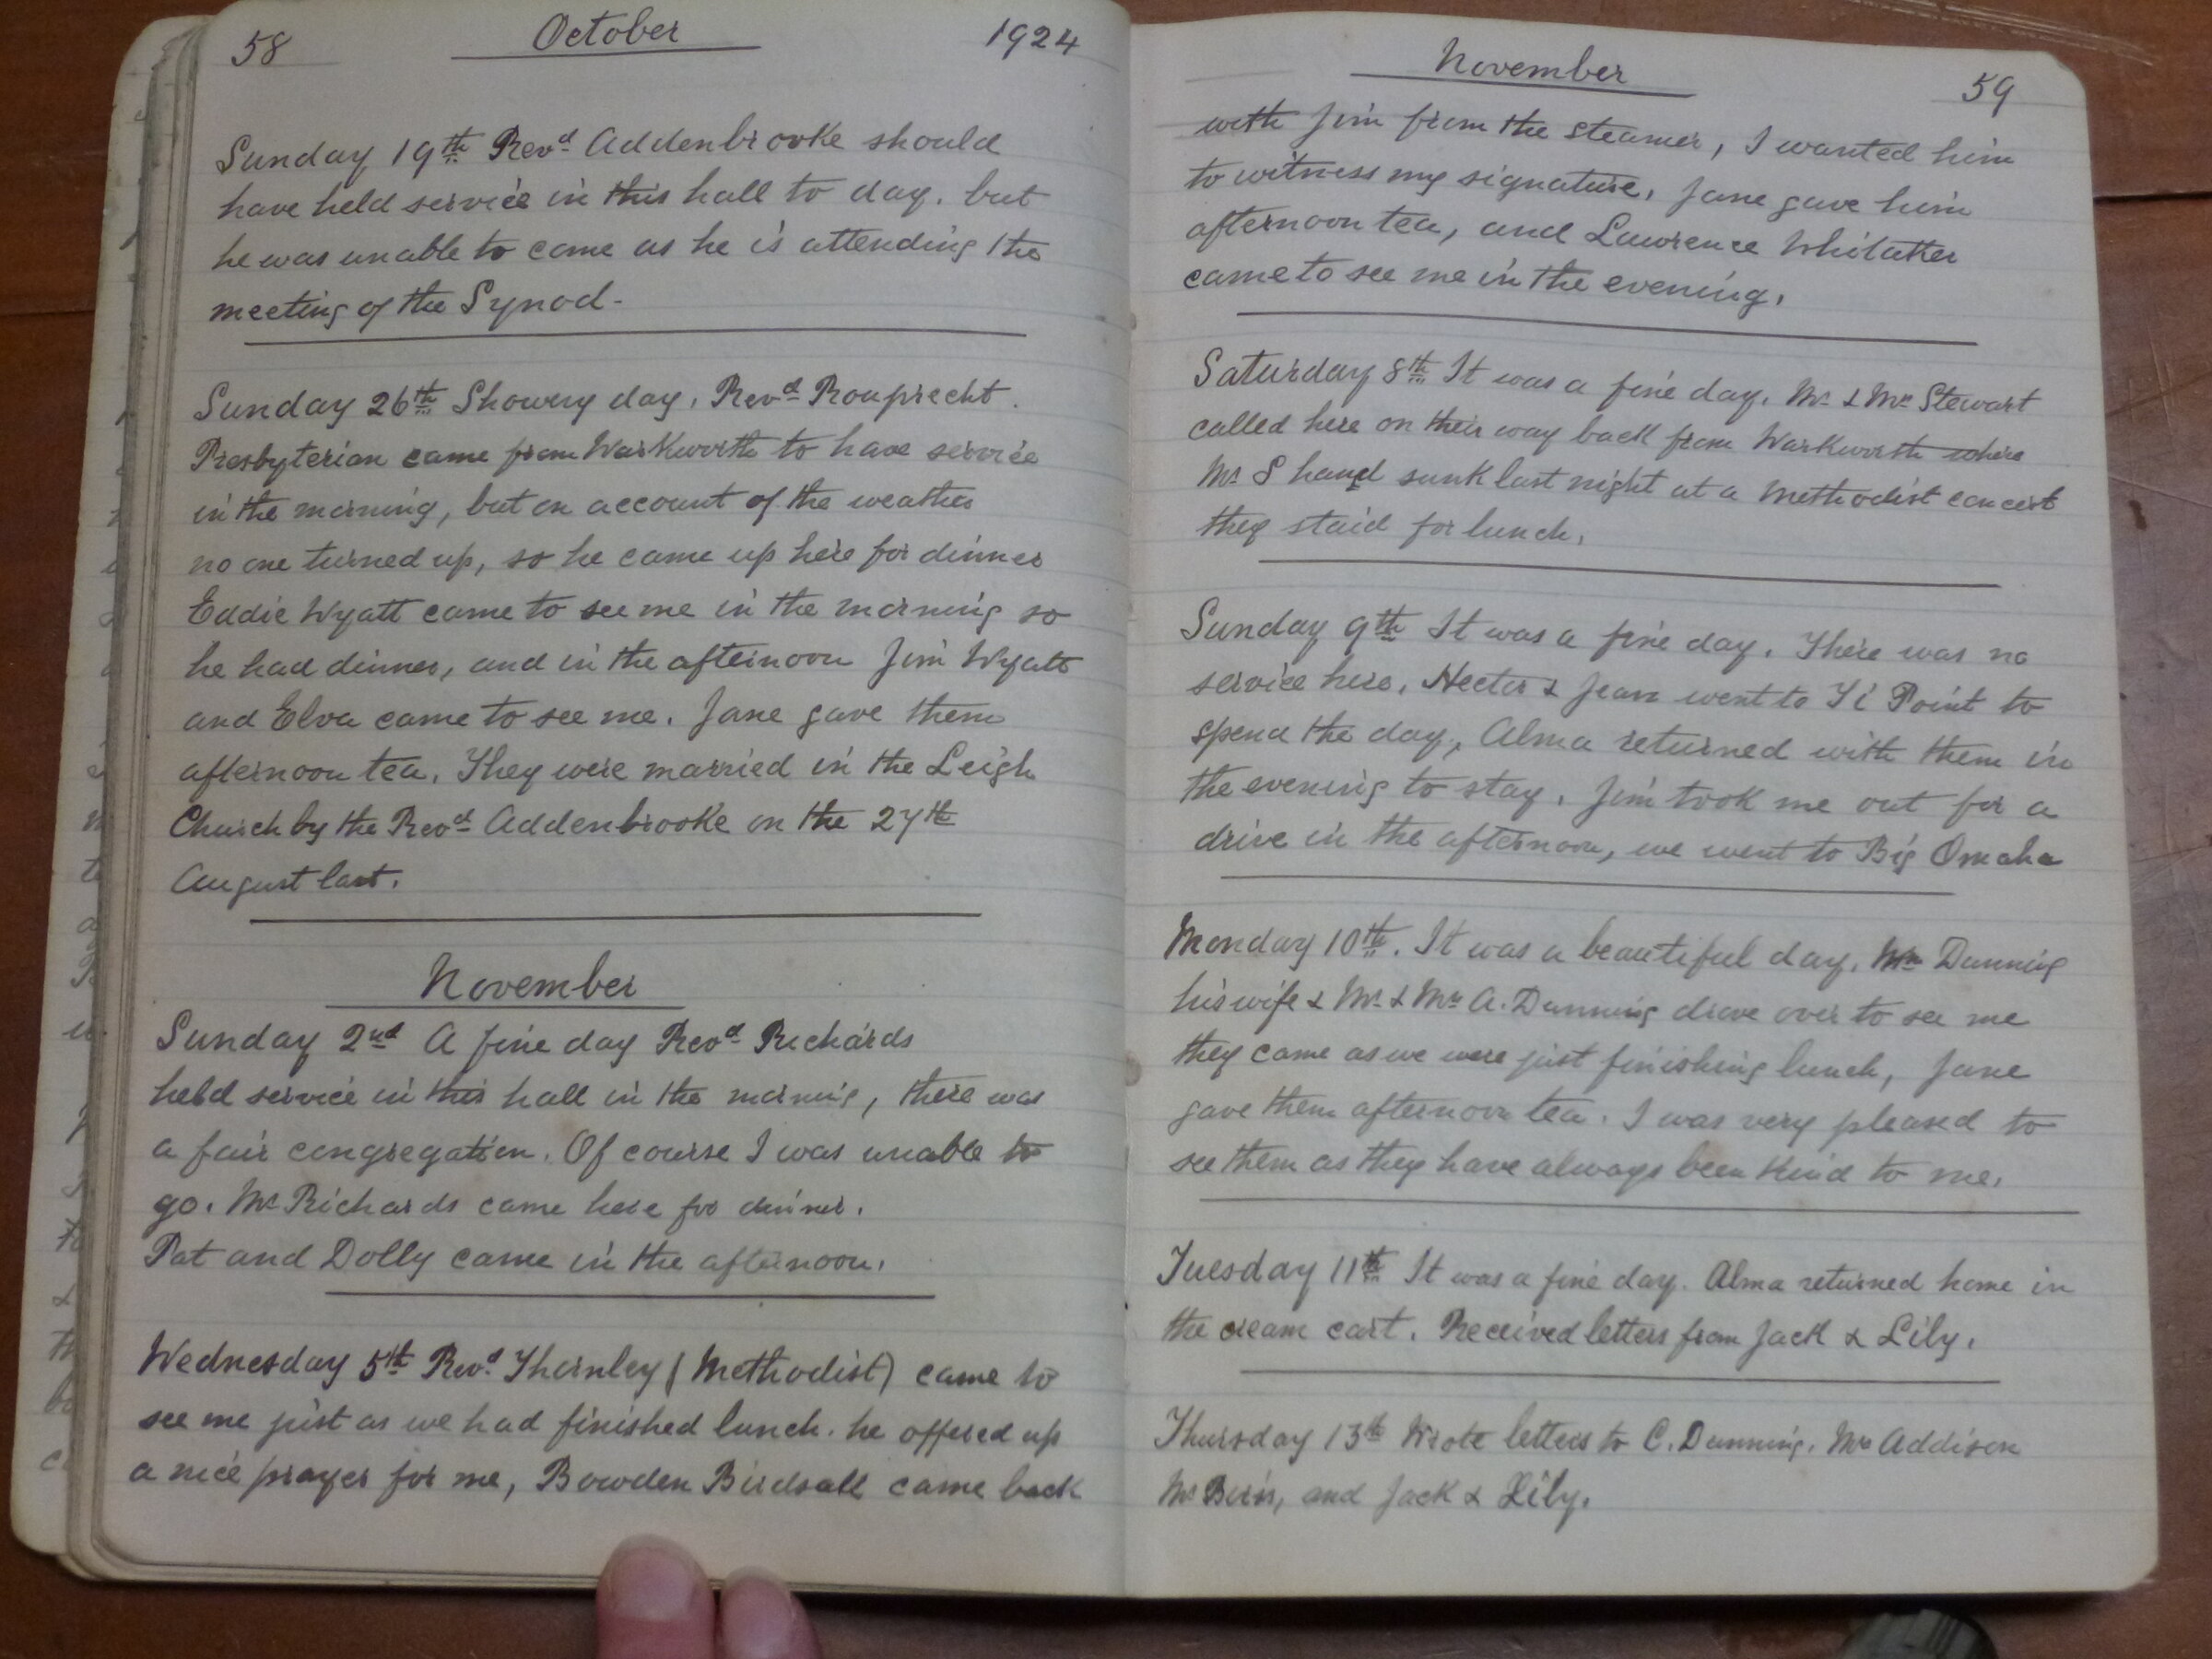 58 October 1924
Sunday 19th Revd Addenbrooke should
have held service in this hall to day. but
he was unable to come as he is attending the
meeting of the Synod-
Sunday 26th Showery day, Revd Rouprecht.
Presbyterian came from Warkworth to have service
in the morning, but on account of the weather
no one turned up, so he came up here for dinner
Eddie Wyatt came to see me in the morning so
he had dinner, and in the afternoon Jim Wyatt
and Elva came to see me. Jane gave them
afternoon tea. They were married in the Leigh
Church by the Revd Addenbrooke on the 27th
August last.
November
Sunday 2nd A fine day Revd Richards
held service in this hall in the morning, there was
a fair congregation. Of course I was unable to
go. Mr Richards came here for dinner.
Pat and Dolly came in the afternoon.
Wednesday 5th Revd. Thornley (Methodist) came to
see me just as we had finished lunch. he offered up
a nice prayer for me, Bowden Birdsall came back
November 59
with Jim from the steamer, I wanted him
to witness my signature, Jane gave him
afternoon tea, and Lawrence Whitaker
came to see me in the evening.
Saturday 8th It was a fine day. Mr & Mrs Stewart
called here on their way back from Warkworth where
Mr S had sunk last night at a Methodist concert
they staid for lunch.
Sunday 9th It was a fine day. There was no
service here. Hector & Jean went to Ti Point to
spend the day, Alma returned with them in
the evening to stay. Jim took me out for a
drive in the afternoon, we went to Big Omaha
Monday 10th. It was a beautiful day. Wm Dunning
his wife & Mr & Mrs A. Dunning drove over to see me
they came as we were just finishing lunch, Jane
gave them afternoon tea. I was very pleased to
see them as they have always been kind to me.
Tuesday 11th It was a fine day. Alma returned home in
the cream cart. Received letters from Jack & Lily.
Thursday 13th Wrote letters to C. Dunning. Mrs Addison
and Jack & Lily.